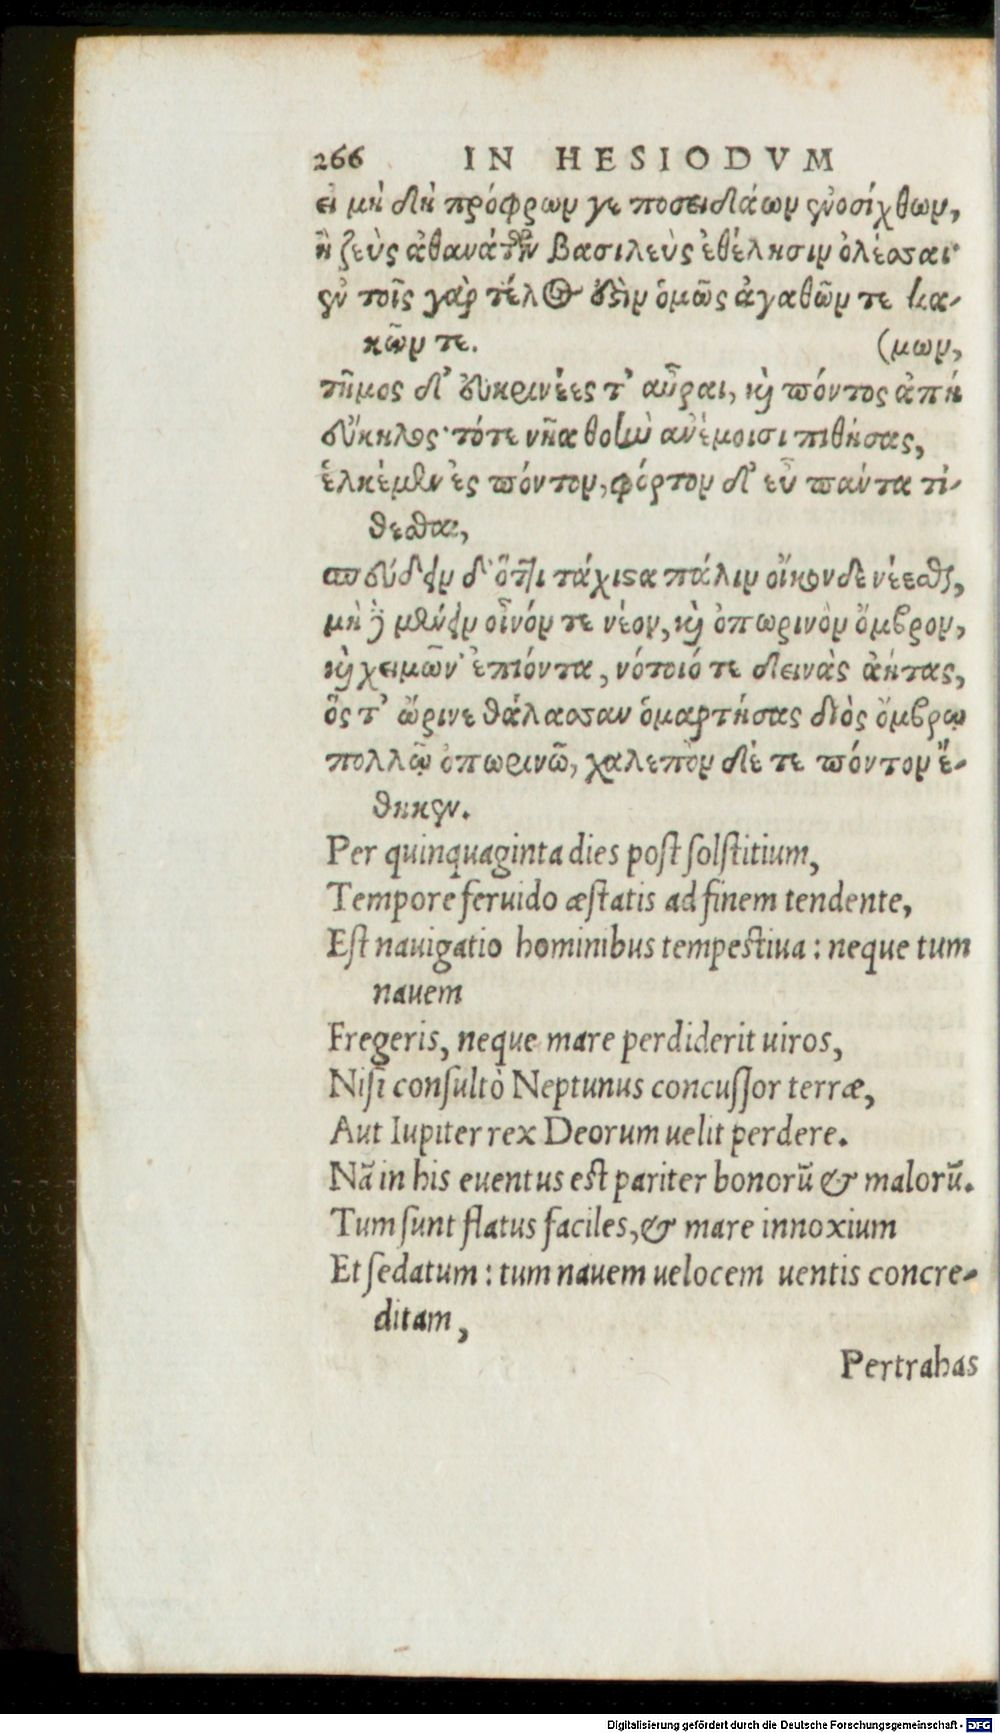 266 IN HESIODVM
εἰ μὴ δὴ πρόφρων γε ποσειδάων ἐνοσίχθων,
ἢ ζεὺς ἀθανάτων βασιλεὺς ἐθέλησιν ὀλέσσαι·
ἐν τοῖς γὰρ τέλος ἐστὶν ὁμῶς ἀγαθῶν τε κα-
κῶν τε. (μων,
τῆμος δ' εὐκρινέες τ' αὖραι, καὶ πόντος ἀπή
εὔκηλος· τότε νῆα θοὴν ἀνέμοισι πιθήσας,
ἑλκέμεν ἐς πόντον, φόρτον δ' εὖ πάντα τί-
θεσθαι,
σπεύδειν δ' ὅττι τάχιστα πάλιν οἶκον δε νέεσθαι,
μὴ δὲ μένειν οἶνόν τε νέον, καὶ ὀπωρινὸν ὄμβρον,
καὶ χειμῶν' ἐπιόντα, νότοιό τε δεινὰς ἀήτας,
ὅς τ' ὤρινε θάλασσαν ὁμαρτήσας διὸς ὄμβρῳ
πολλῷ ὀπωρινῷ, χαλεπὸν δέ τε πόντον ἔ-
θηκεν.
Per quinquaginta dies post solstitium,
Tempore feruido æstatis ad finem tendente,
Est nauigatio hominibus tempestiua : neque tum
nauem
Fregeris, neque mare perdiderit uiros,
Nisi consultò Neptunus concussor terræ,
Aut Iupiter rex Deorum uelit perdere.
Nã in his euentus est pariter bonorũ & malorũ.
Tum sunt flatus faciles, & mare innoxium
Et sedatum : tum nauem uelocem uentis concre-
ditam,
Pertrahas
Digitalisierung gefördert durch die Deutsche Forschungsgemeinschaft - DFG